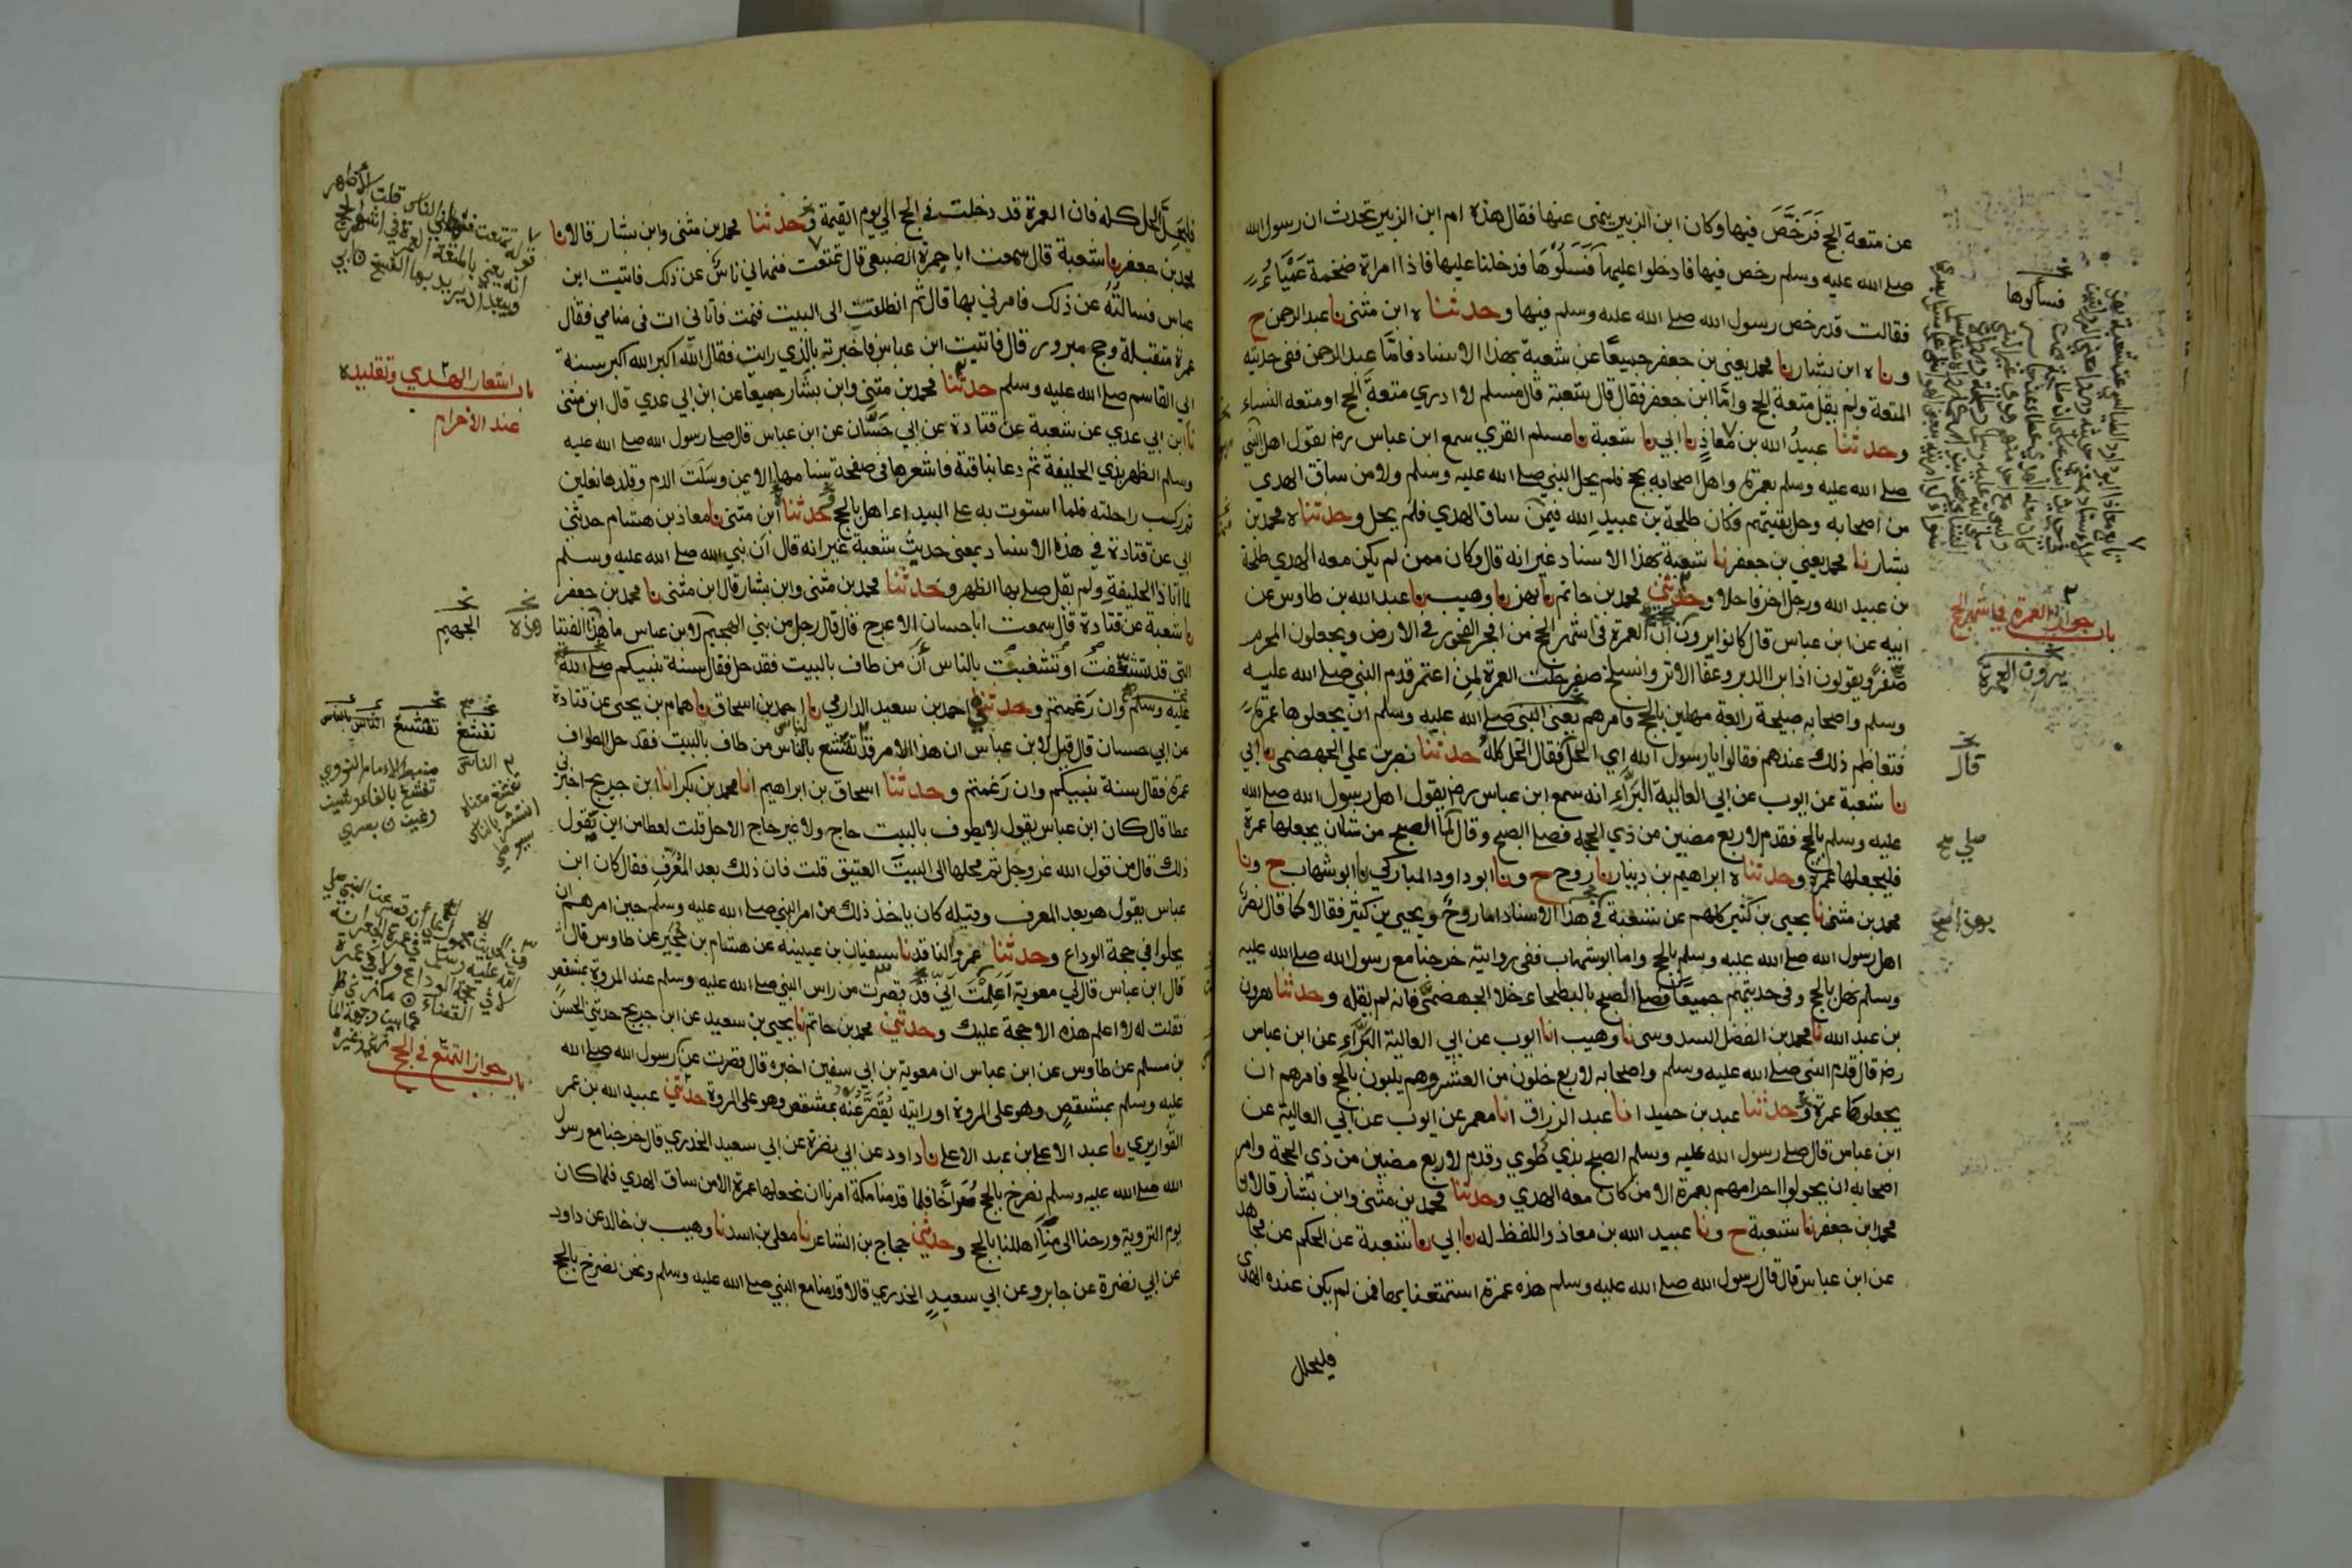 عن متعة الحج فَرَخَّصَ فيها وكان ابن الزبير ينهى عنها فقال هذه ام ابن الزبير تحدث ان رسول الله
صلى الله عليه وسلم رخص فيها فادخلوا عليها فَسَلُوْهَا فدخلنا عليها فاذا امراة ضخمة عَمْيَاءُ
فقالت قد رخص رسول الله صلى الله عليه وسلم فيها وحدثناه ابن مثنى نا عبد الرحمن ح
وناه ابن بشار نا محمد يعني بن جعفر جميعًا عن شعبة بهذا الاسناد فامّا عبد الرحمن ففي حديثه
المتعة ولم يقل متعة الحج وامّا ابن جعفر فقال قال شعبة قال مسلم لا ادري متعة الحج او متعة النساء
وحدثنا عبيدُ الله بن مُعاذٍ نا ابي نا شعبة نا مسلم القري سمع ابن عباس رضـ يقول اهل النبي
صلى الله عليه وسلم بعمرة واهل اصحابه بحج فلم يحل النبي صلى الله عليه وسلم ولا من ساق الهدي
من اصحابه وحل بقيتهم وكان طلحة بن عبيد الله فيمن ساق الهدي فلم يحل وحدثناه محمد بن
بشار نا محمد يعني بن جعفر نا شعبة بهذا الاسناد غير انه قال وكان ممن لم يكن معه الهدي طلحة
بن عبيد الله ورجل اخر فاحلا وحدثني محمد بن حاتم نا بهز نا وهيب نا عبد الله بن طاوس عن
ابيه عن ابن عباس قال كانوا يرون ان العمرة في اشهر الحج من افجر الفجور في الارض ويجعلون المحرم
صفر ويقولون اذا برا الدبر وعفا الاثر وانسلخ صفر حلت العمرة لمن اعتمر قدم النبي صلى الله عليه
وسلم واصحابه صبيحة رابعة مهلين بالحج فامرهم يعني النبي صلى الله عليه وسلم ان يجعلوها عمرة
فتعاظم ذلك عندهم فقالوا يا رسول الله اي الحل فقال الحل كله حدثنا نصر بن علي الجهضمي نا ابي
نا شعبة عن ايوب عن ابي العالية البَرَّاءِ انه سمع ابن عباس رضـ يقول اهل رسول الله صلى الله
عليه وسلم بالحج فقدم لاربع مضين من ذي الحجة فصلى الصبح وقال لمّا الصبح من شا ان يجعلها عمرة
فليجعلها عمرة وحدثناه ابراهيم بن دينار نا روح ح ونا ابو داود المباركي نا ابو شهاب ح ونا
محمد بن مثنى نا يحيى بن كثير كلهم عن شعبة في هذا الاسناد اما روح ويحيى بن كثير فقالا كما قال نصر
اهل رسول الله صلى الله عليه وسلم بالحج واما ابو شهاب ففي روايته خرجنا مع رسول الله صلى الله عليه
وسلم نهل بالحج وفي حديثهم جميعًا فصلى الصبح بالبطحاء خلا الجهضمي فانه لم يقله وحدثنا هرون
بن عبد الله نا محمد بن الفضل السدوسي نا وهيب انا ايوب عن ابي العالية البَرَّاءِ عن ابن عباس
رضـ قال قدم النبي صلى الله عليه وسلم واصحابه لاربع خلون من العشر وهم يلبون بالحج فامرهم ان
يجعلوها عمرة وحدثنا عبد بن حميد انا عبد الرزاق انا معمر عن ايوب عن ابي العالية عن
ابن عباس قال صلى رسول الله عليه وسلم الصبح بذي طُوي وقدم لاربع مضين من ذي الحجة وامر
اصحابه ان يحولوا احرامهم بعمرة الا من كان معه الهدي وحدثنا محمد بن مثنى وابن بشار قالا نا
محمد ابن جعفر نا شعبة ح ونا عبيد الله بن معاذ واللفظ له نا ابي نا شعبة عن الحكم عن مجاهد
عن ابن عباس قال قال رسول الله صلى الله عليه وسلم هذه عمرة استمتعنا بها فمن لم يكن عنده الهدي
فليحلل
فسألوها
باب جواز العمرة في اشهر الحج
يرون العمرة
قال
صلى صح
فليحل الحل كله فان العمرة قد دخلت في الحج الي يوم القيمة وحدثنا محمد بن مثنى وابن بشار قالا نا
محمد بن جعفر نا شعبة قال سمعت ابا جمرة الضبعي قال تمتعت فنهاني ناسٌ عن ذلك فاتيت ابن
عباس فسالتُهُ عن ذلك فامرني بها قال ثم انطلقت الى البيت فنمت فاتاني ات في منامي فقال
عمرة متقبلة وحج مبرور قال فاتيت ابن عباس فاخبرته بالذي رايت فقال الله اكبر الله اكبر سنة
ابي القاسم صلى الله عليه وسلم حدثنا محمد بن مثنى وابن بشار جميعًا عن ابن ابي عدي قال ابن مثنى
نا ابن ابي عدي عن شعبة عن قتادة عن ابي حَسَّان عن ابن عباس قال صلى رسول الله صلى الله عليه
وسلم الظهر بذي الحليفة ثم دعا بناقته فاشعرها في صفحة سنامها الايمن وسَلَتَ الدم وقلدها نعلين
ثم ركب راحلته فلما استوت به على البيداء اهل بالحج وحدثنا ابن مثنى نا معاذ بن هشام حدثني
ابي عن قتادة في هذه الاسناد بمعنى حديث شعبة غير انه قال ان نبي الله صلى الله عليه وسلم
لما اتا ذا الحليفة ولم يقل صلى بها الظهر وحدثنا محمد بن مثنى وابن بشار قال ابن مثنى نا محمد بن جعفر
نا شعبة عن قتادة قال سمعت ابا حسان الاعرج قال قال رجل من بني الهجيم لابن عباس ما هذا الفتيا
التي قد تشغفت او تشغبت بالناس أن من طاف بالبيت فقد حل فقال سنة نبيكم صلى الله
عليه وسلم وان رَغمتم وحدثني احمد بن سعيد الدارمي نا احمد بن اسحاق نا همام بن يحيى عن قتادة
عن ابي حسان قال قيل لابن عباس ان هذا الامر قد تفشغ بالناس من طاف بالبيت فقد حل الطواف
عمرة فقال سنة نبيكم وان رَغمتم وحدثنا اسحاق بن ابراهيم انا محمد بن بكر انا ابن جريج اخبرني
عطا قال كان ابن عباس يقول لا يطوف بالبيت حاج ولا غير حاج الا حل قلت لعطا من اين يقول
ذلك قال من قول الله عز وجل ثم محلها الى البيت العتيق قلت فان ذلك بعد المُعَرَّفِ فقال كان ابن
عباس يقول هو بعد المعرف وقبله كان ياخذ ذلك من امر النبي صلى الله عليه وسلم حين امرهم ان
يحلوا في حجة الوداع وحدثنا عمرو الناقد نا سفيان بن عيينه عن هشام بن حُجَير عن طاوس قال
قال ابن عباس قال لي معوية اَعَلِمْتَ اَنِّي قد قصرت من راس النبي صلى الله عليه وسلم عند المروة بمشقص
فقلت له لا اعلم هذه الا حجة عليك وحدثني محمد بن حاتم نا يحيى بن سعيد عن ابن جريج حدثني الحسن
بن مسلم عن طاوس عن ابن عباس ان معوية بن ابي سفين اخبره قال قصرت عن رسول الله صلى الله
عليه وسلم بمشقصٍ وهو على المروة او رايته يُقَصَّرُ عَنْهُ بمشقص وهو على المروة حدثني عبيد الله بن عمر
القواريري نا عبد الاعلى بن عبد الاعلى نا داود عن ابي نضرة عن ابي سعيد الخدري قال خرجنا مع رسول
الله صلى الله عليه وسلم نصرخ بالحج صُراخًا فلما قدمنا مكة امرنا ان نجعلها عمرة الا من ساق الهدي فلما كان
يوم التروية ورحنا الى مِنًا اهللنا بالحج وحدثني حجاج بن الشاعر نا معلى بن اسد نا وهيب بن خالد عن داود
عن ابي نضرة عن جابر وعن ابي سعيدٍ الخدري قالا قدمنا مع النبي صلى الله عليه وسلم ونحن نصرخ بالحج
باب اشعار الهدي وتقليده
عند الاحرام
هذه
الجهيم
تفشغ
الناس
ضبط الامام النووي
باب جواز التمتع في الحج